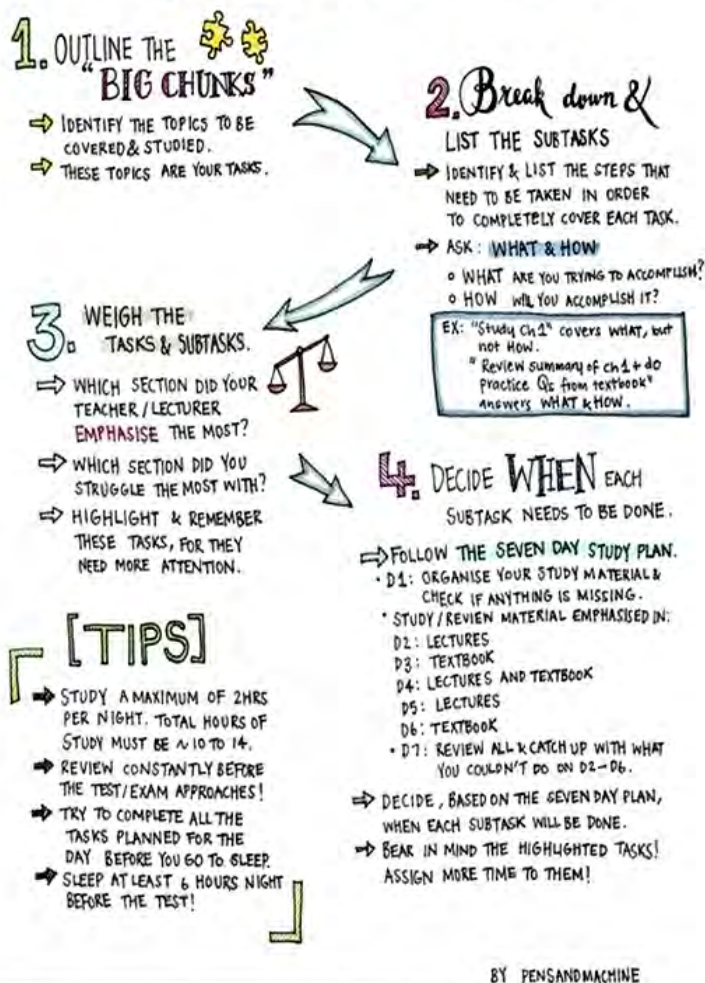 1. OUTLINE THE
"BIG CHUNKS"
⇒ IDENTIFY THE TOPICS TO BE
COVERED & STUDIED.
⇒ THESE TOPICS ARE YOUR TASKS.
2. Break down &
LIST THE SUBTASKS
⇒ IDENTIFY & LIST THE STEPS THAT
NEED TO BE TAKEN IN ORDER
TO COMPLETELY COVER EACH TASK.
⇒ ASK: WHAT & HOW
° WHAT ARE YOU TRYING TO ACCOMPLISH?
° HOW WILL YOU ACCOMPLISH IT?
EX: "Study Ch1" covers WHAT, but
not HOW.
"Review summary of ch1 + do
practice Qs from textbook"
answers WHAT & HOW.
3. WEIGH THE
TASKS & SUBTASKS.
⇒ WHICH SECTION DID YOUR
TEACHER/LECTURER
EMPHASISE THE MOST?
⇒ WHICH SECTION DID YOU
STRUGGLE THE MOST WITH?
⇒ HIGHLIGHT & REMEMBER
THESE TASKS, FOR THEY
NEED MORE ATTENTION.
4. DECIDE WHEN EACH
SUBTASK NEEDS TO BE DONE.
⇒ FOLLOW THE SEVEN DAY STUDY PLAN.
• D1: ORGANISE YOUR STUDY MATERIAL &
CHECK IF ANYTHING IS MISSING.
• STUDY/REVIEW MATERIAL EMPHASISED IN:
D2: LECTURES
D3: TEXTBOOK
D4: LECTURES AND TEXTBOOK
D5: LECTURES
D6: TEXTBOOK
• D7: REVIEW ALL & CATCH UP WITH WHAT
YOU COULDN'T DO ON D2-D6.
⇒ DECIDE, BASED ON THE SEVEN DAY PLAN,
WHEN EACH SUBTASK WILL BE DONE.
⇒ BEAR IN MIND THE HIGHLIGHTED TASKS!
ASSIGN MORE TIME TO THEM!
[TIPS]
⇒ STUDY A MAXIMUM OF 2HRS
PER NIGHT. TOTAL HOURS OF
STUDY MUST BE ~ 10 TO 14.
⇒ REVIEW CONSTANTLY BEFORE
THE TEST/EXAM APPROACHES!
⇒ TRY TO COMPLETE ALL THE
TASKS PLANNED FOR THE
DAY BEFORE YOU GO TO SLEEP.
⇒ SLEEP AT LEAST 6 HOURS NIGHT
BEFORE THE TEST!
BY PENSANDMACHINE